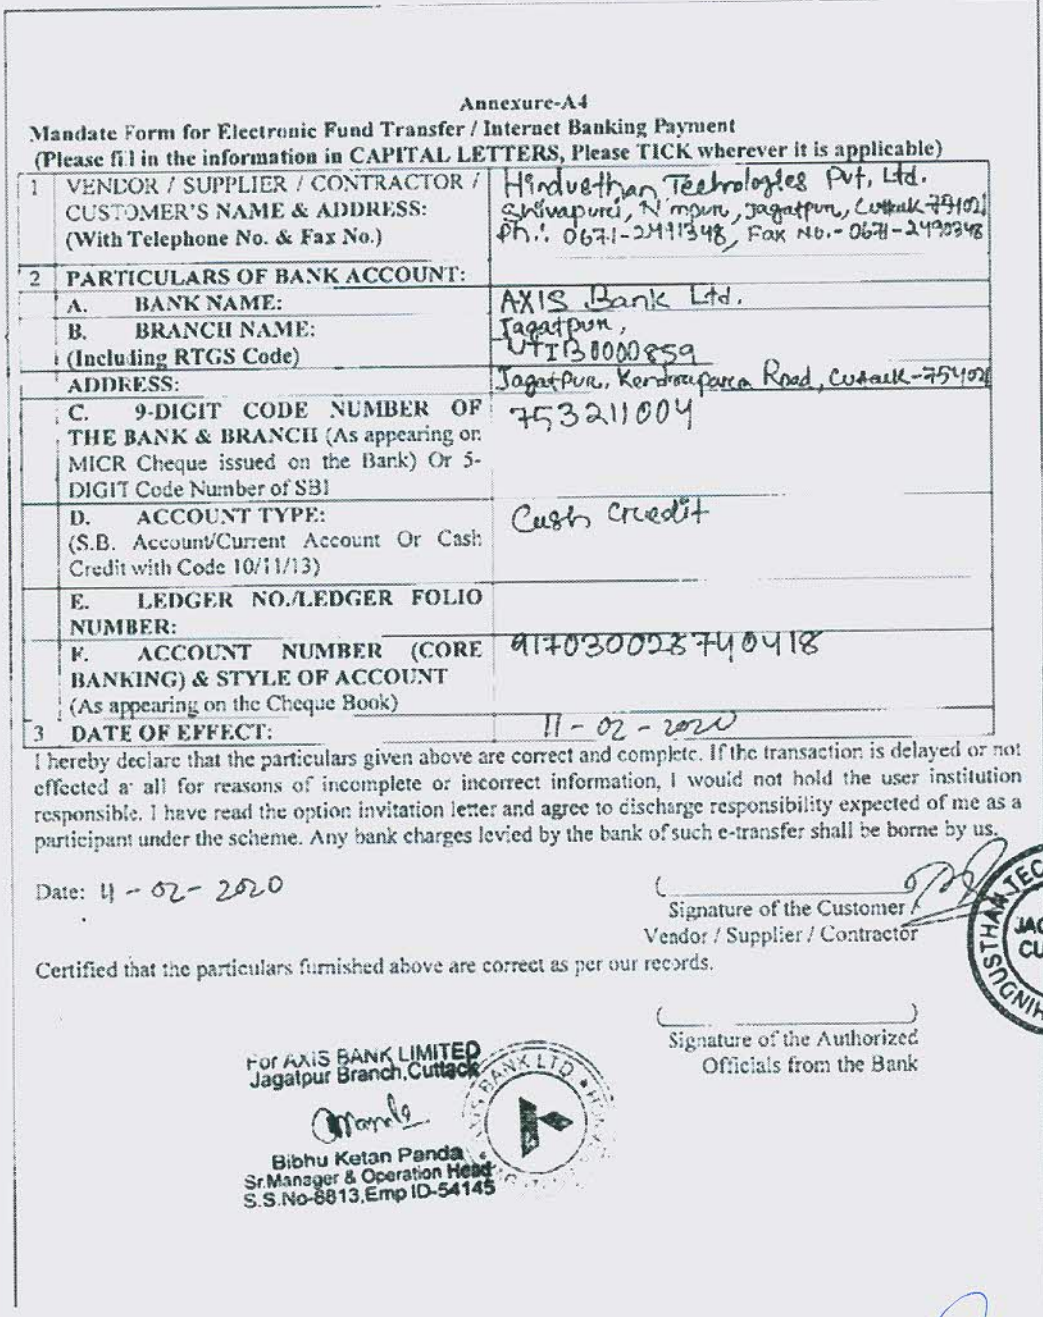 Annexure-A4
Mandate Form for Electronic Fund Transfer / Internet Banking Payment
(Please fill in the information in CAPITAL LETTERS, Please TICK wherever it is applicable)
1 VENDOR / SUPPLIER / CONTRACTOR /
CUSTOMER'S NAME & ADDRESS:
(With Telephone No. & Fax No.)
Hindusthan Technologies Pvt, Ltd.
Shivapuri, N'mpur, Jagatpur, Cuttak-754021
Ph.: 0671-2491348, Fax No.- 0671-2490348
2 PARTICULARS OF BANK ACCOUNT:
A. BANK NAME:
AXIS Bank Ltd.
B. BRANCH NAME:
(Including RTGS Code)
Jagatpur,
UTIB0000859
ADDRESS:
Jagatpur, Kendrapara Road, Cuttack-754021
C. 9-DIGIT CODE NUMBER OF
THE BANK & BRANCH (As appearing on
MICR Cheque issued on the Bank) Or 5-
DIGIT Code Number of SBI
753211004
D. ACCOUNT TYPE:
(S.B. Account/Current Account Or Cash
Credit with Code 10/11/13)
Cash Credit
E. LEDGER NO./LEDGER FOLIO
NUMBER:
F. ACCOUNT NUMBER (CORE
BANKING) & STYLE OF ACCOUNT
(As appearing on the Cheque Book)
917030028740418
3 DATE OF EFFECT:
11-02-2020
I hereby declare that the particulars given above are correct and complete. If the transaction is delayed or not
effected at all for reasons of incomplete or incorrect information, I would not hold the user institution
responsible. I have read the option invitation letter and agree to discharge responsibility expected of me as a
participant under the scheme. Any bank charges levied by the bank of such e-transfer shall be borne by us.
Date: 11-02-2020
Signature of the Customer /
Vendor / Supplier / Contractor
HINDUSTHAN TEC
JAG
CU
Certified that the particulars furnished above are correct as per our records.
Signature of the Authorized
Officials from the Bank
For AXIS BANK LIMITED
Jagatpur Branch,Cuttack
AXIS BANK LTD.
Bibhu Ketan Panda
Sr.Manager & Operation Head
S.S.No-8813,Emp ID-54145